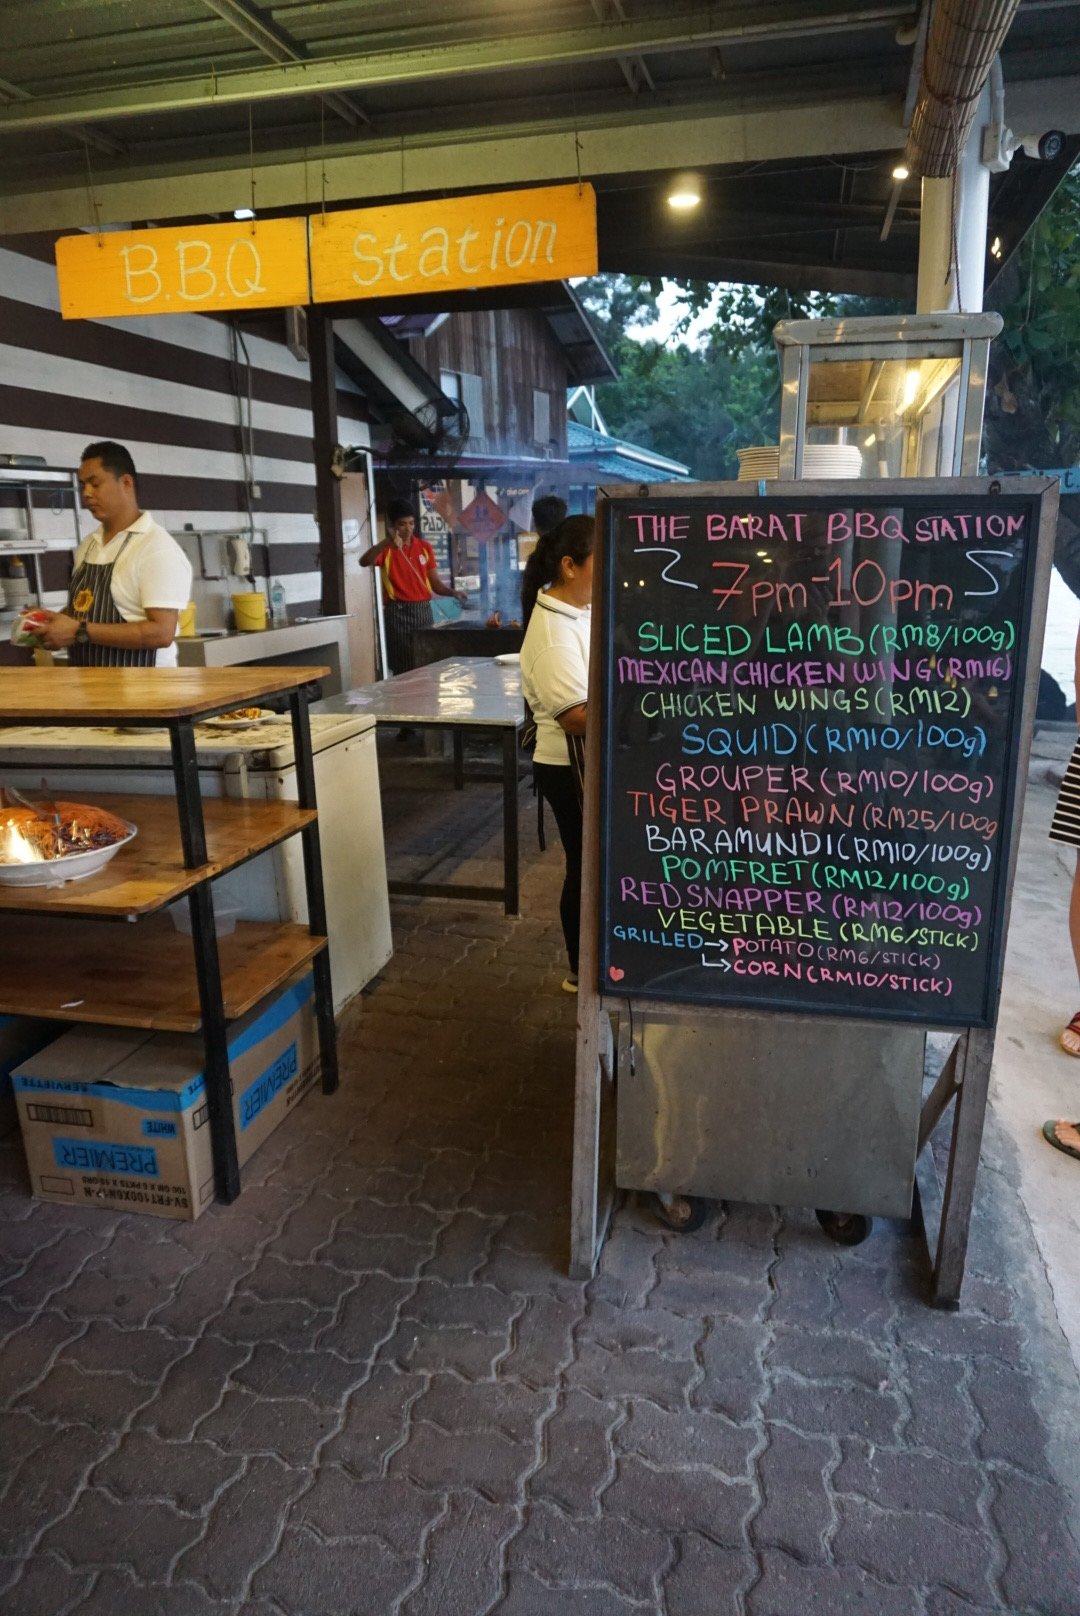 B.B.Q Station
THE BARAT BBQ STATION
7pm-10pm
SLICED LAMB (RM8/100g)
MEXICAN CHICKEN WING (RM16)
CHICKEN WINGS (RM12)
SQUID (RM10/100g)
GROUPER (RM10/100g)
TIGER PRAWN (RM25/100g
BARAMUNDI (RM10/100g)
POMFRET (RM12/100g)
RED SNAPPER (RM12/100g)
VEGETABLE (RM6/STICK)
GRILLED → POTATO (RM6/STICK)
↳ CORN (RM10/STICK)
SERVIETTE
WHITE
PREMIER
PREMIER